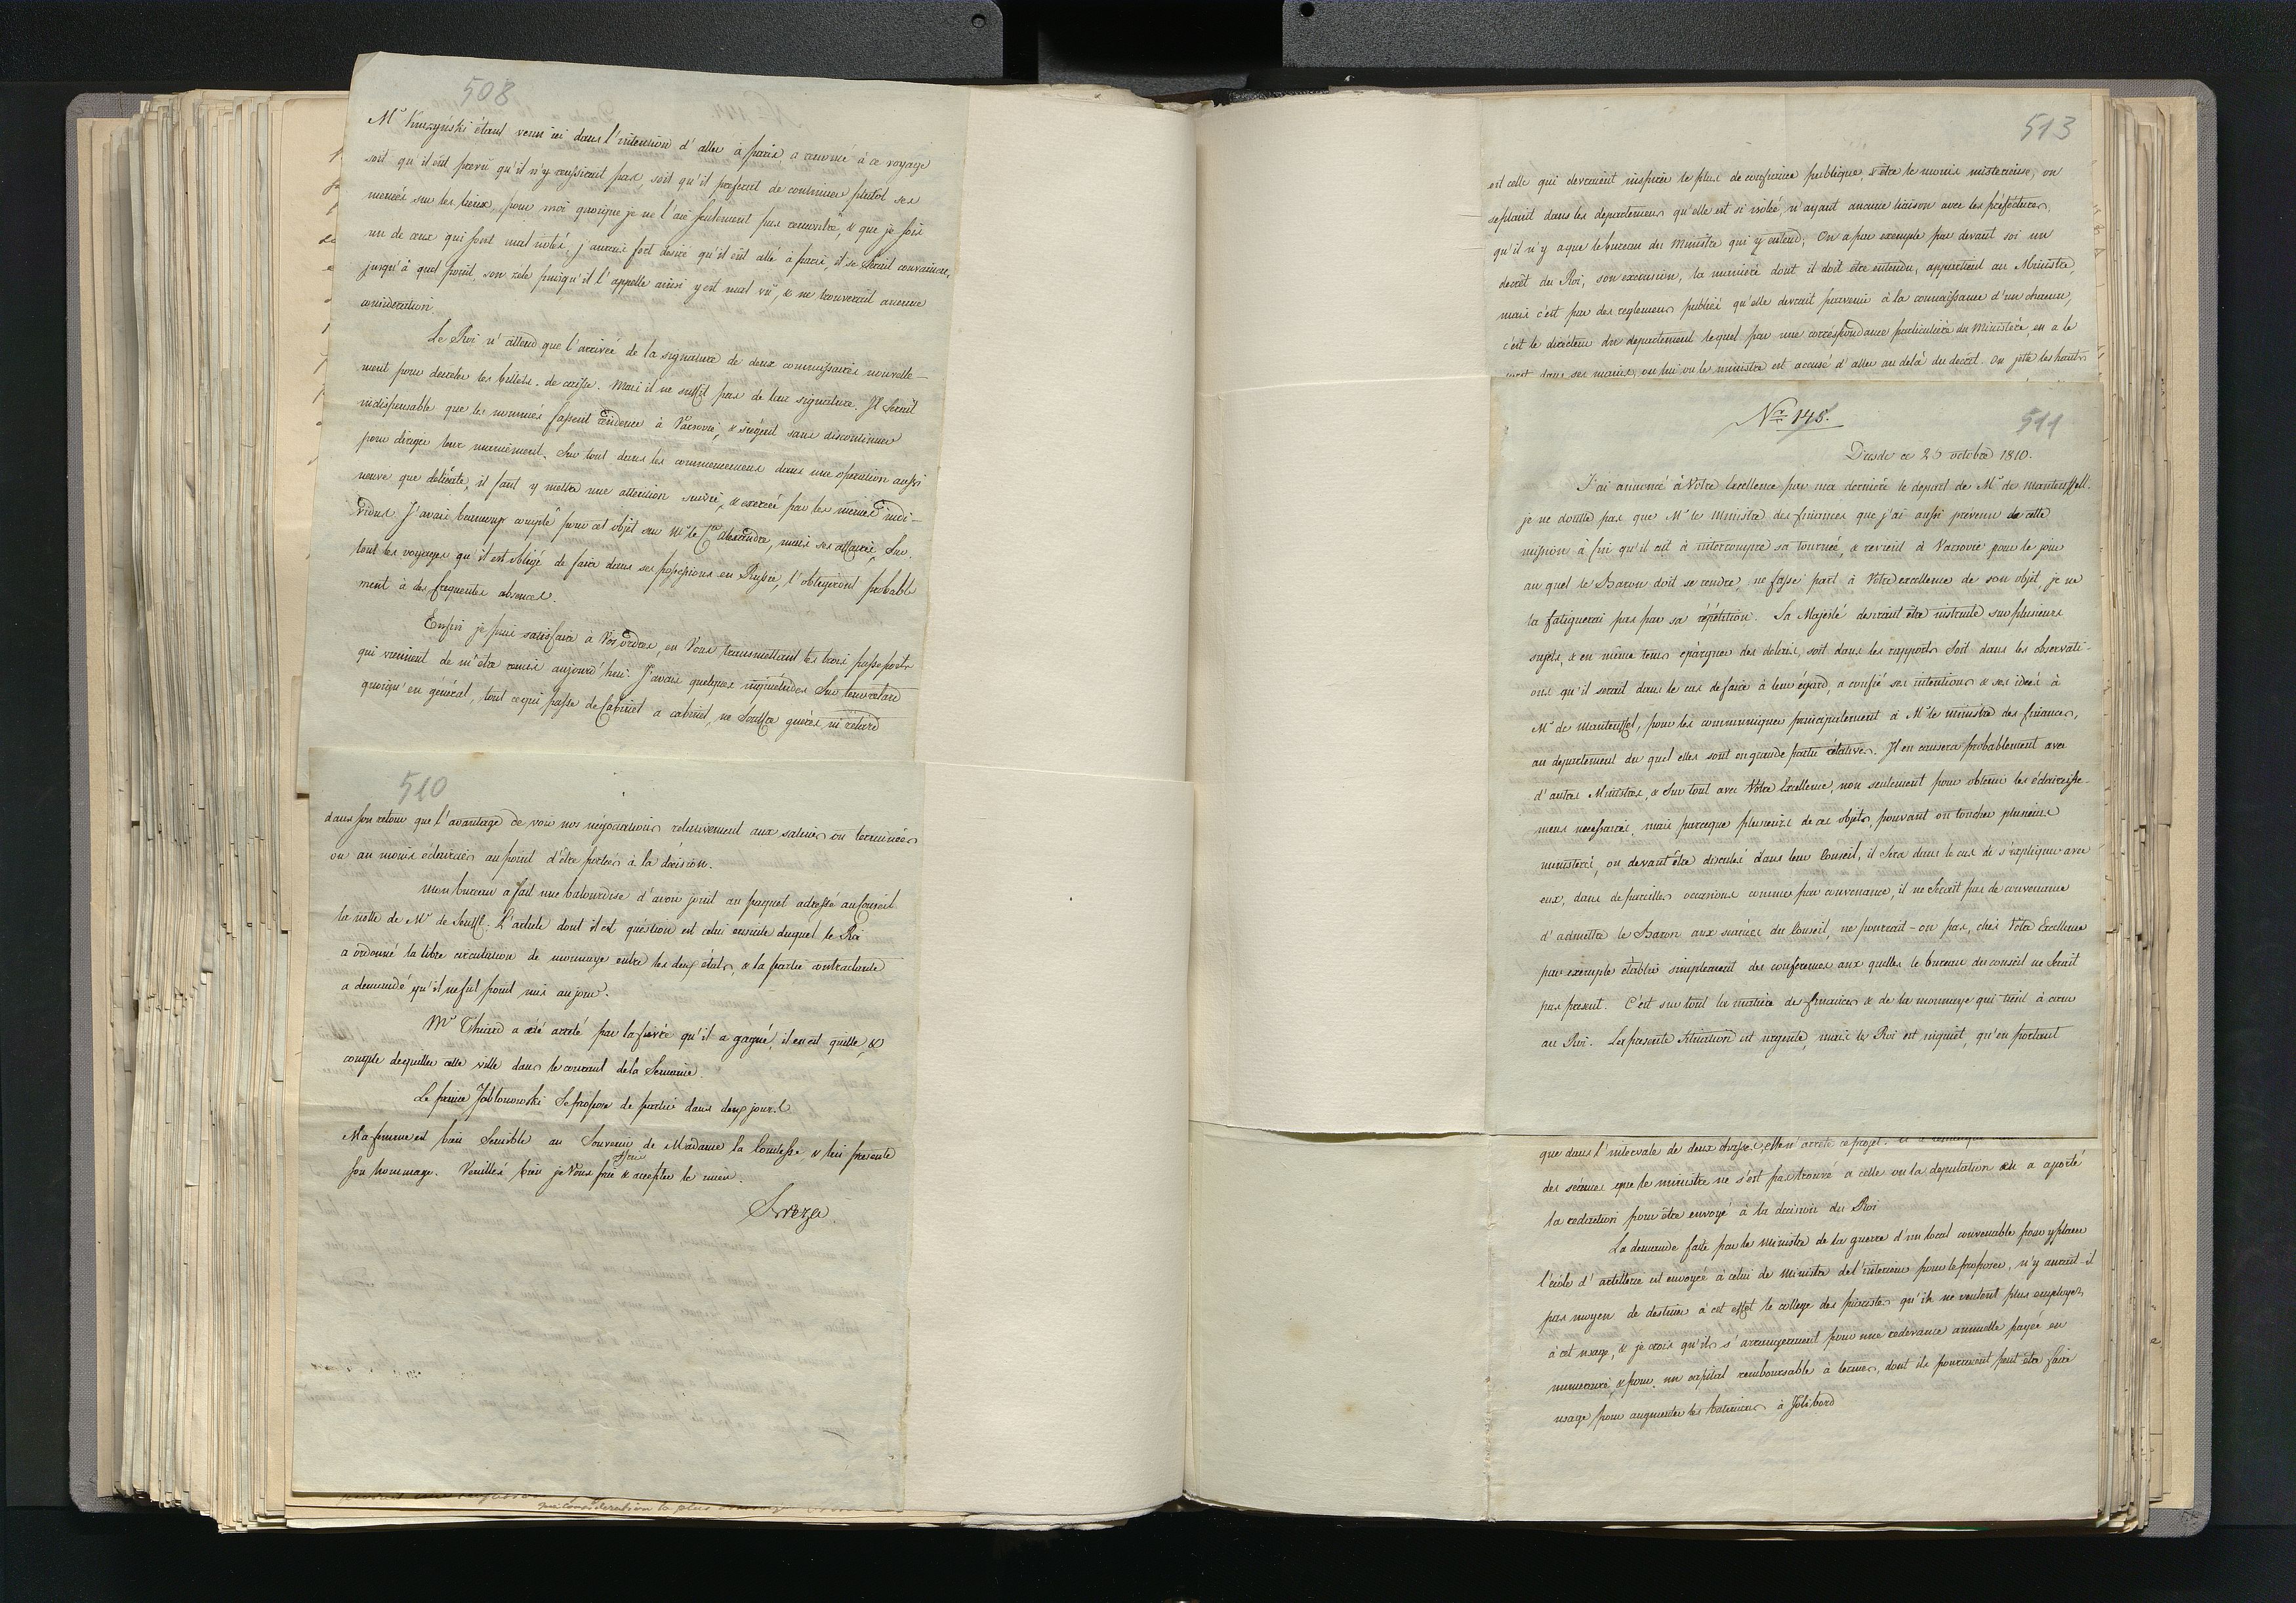 508
Mr Kuczyński étant venu ici dans l'intension d'aller à paris, a renoncé à ce voyage
soit qu'il eut prevû qu'il n'y reussirait pas, soit qu'il preferait de continuer plutot ses
menées sur les lieux, pour moi quoique je ne l'aie seulement pas rencontré, & que je sois
un de ceux qui sont mal notés, j'aurais fort desiré qu'il eût allé à paris, il se serait convaincu,
jusqu'à quel point, son zéle puisqu'il l'appelle ainsi y est mal vû, & ne trouverait aucune
consideration.
Le Roi n'attend que l'arrivée de la signature de deux commissaires nouvelle-
ment pour decreter les billets de caisse. Mais il ne suffit pas de leur signature. Il serait
indispensable que les nommés fassent residence à Varsovie, & siegent sans discontinuer
pour diriger leur maniement. Sur tout dans les commencemens dans une operation aussi
neuve que delicate, il faut y mettre une attention suivie, & exercée par les mêmes indi-
vidus. J'avais beaucoup compté pour cet objet sur Mr le Cte Alexandre, mais ses affaires, sur
tout les voyages qu'il est obligé de faire dans ses possessions en Russie, l'obligeront probable
ment à des frequentes absences.
Enfin je puis satisfaire à Vos ordres, en Vous transmettant les trois passeports
qui viennent de m'être remis aujourd'hui. J'avais quelques inquiétudes sur leur retard
quoiqu'en général, tout ce qui passe de Cabinet a cabinet, ne souffre guères ni retard
510
dans son retour que l'avantage de voir nos négociations relativement aux salines ou terminées
ou au moins éclaircies au point d'être portées à la décision.
Mon bureau a fait une balourdise d'avoir joint au paquet adressé au Conseil
la notte de Mr de Senfft. L'article dont il est question est celui ensuite duquel le Roi
a ordonné la libre circulation de monnaye entre les deux états, & la partie contractante
a demandé qu'il ne fut point mis au jour.
Mr Thiard a été arreté par la fievre qu'il a gagné, il en est quitte, &
compte de quitter cette ville dans le courant de la Semaine.
Le prince Jabłonowski se propose de partir dans deux jours.
Ma femme est bien sensible au Souvenir de Madame la Comtesse, & lui presente
son hommage. Veuillés bien je Vous prie & accepter le mien.
Breza
513
est celle qui devraient inspirer le plus de confiance publique, & être le moins misterieuse, on
se plaint dans les departemens qu'elle est si isolée, n'ayant aucune liaison avec les préfectures,
qu'il n'y a que le bureau du Ministre qui y entend; On a par exemple par devant soi un
decrêt du Roi, son execusion, la manière dont il doit etre entendu, appartient au Ministre,
mais c'est par des reglemens publiés qu'elle devrait parvenir à la connaissance d'un chacun,
c'est le directeur du departement lequel par une correspondance particulière du Ministére en a le
dans ses mains, ou lui ou le ministre est accusé d'aller au delà du decrêt. On jète les hauts
No 145.
511
Dresde ce 25 octobre 1810.
J'ai annoncé à Votre Excellence par ma dernière le depart de Mr de Manteuffell.
je ne doutte pas que Mr le Ministre des finances que j'ai aussi prévenu de cette
mission à fin qu'il ait à interrompre sa tournée, & revieñt à Varsovie pour le jour
au quel le Baron doit se rendre, ne fasse part à Votre excellence de son objet, je ne
la fatiguerai pas par sa répétition. Sa Majesté desirant être instruite sur plusieurs
sujets, & en même tems epargner des delais, soit dans les rapports soit dans les observati-
ons qu'il serait dans le cas de faire à leur égard, a confié ses intentions & ses idées à
Mr de Manteuffel, pour les communiquer principalement à Mr le ministre des finances,
au departement du quel elles sont en grande partie rélatives. Il en causera probablement avec
d'autres Ministres, & sur tout avec Votre Excellence, non seulement pour obtenir les éclaircisse-
mens necessaires, mais parceque plusieurs de ces objets, pouvant en toucher plusieurs
ministères, ou devant être discutés dans leur Conseil, il sera dans le cas de s'expliquer avec
eux, dans de pareilles occasions comme par convenance, il ne serait pas de convenance
d'admettre le Baron aux séances du Conseil, ne pourrait-on pas, chés Votre Excellence
par exemple établir simplement des conferences aux quelles le bureau du conseil ne serait
pas present. C'est sur tout la matière de finances & de la monnaye qui tient à coeur
au Roi. La presente situation est urgente, mais le Roi est inquiet, qu'en portant
que dans l'intervale de deux
des séances que le ministre ne s'est pas trouvé a celle ou la deputation en a aporté
la redaction pour être envoyé à la decision du Roi
La demande faite par le Ministre de la guerre d'un local convenable pour y placer
l'école d'artillerie est envoyée à celui de Ministre de l'interieur pour le proposer, n'y aurait-il
pas moyen de destiner à cet effet le college des piaristes qu'ils ne veulent plus employer
à cet usage, & je crois qu'ils s'arrangeraient pour une redevance annuelle payée en
numeraire, & pour un capital remboursable à termes, dont ils pourraient peut être faire
usage pour augmenter les batimens à Jolibord